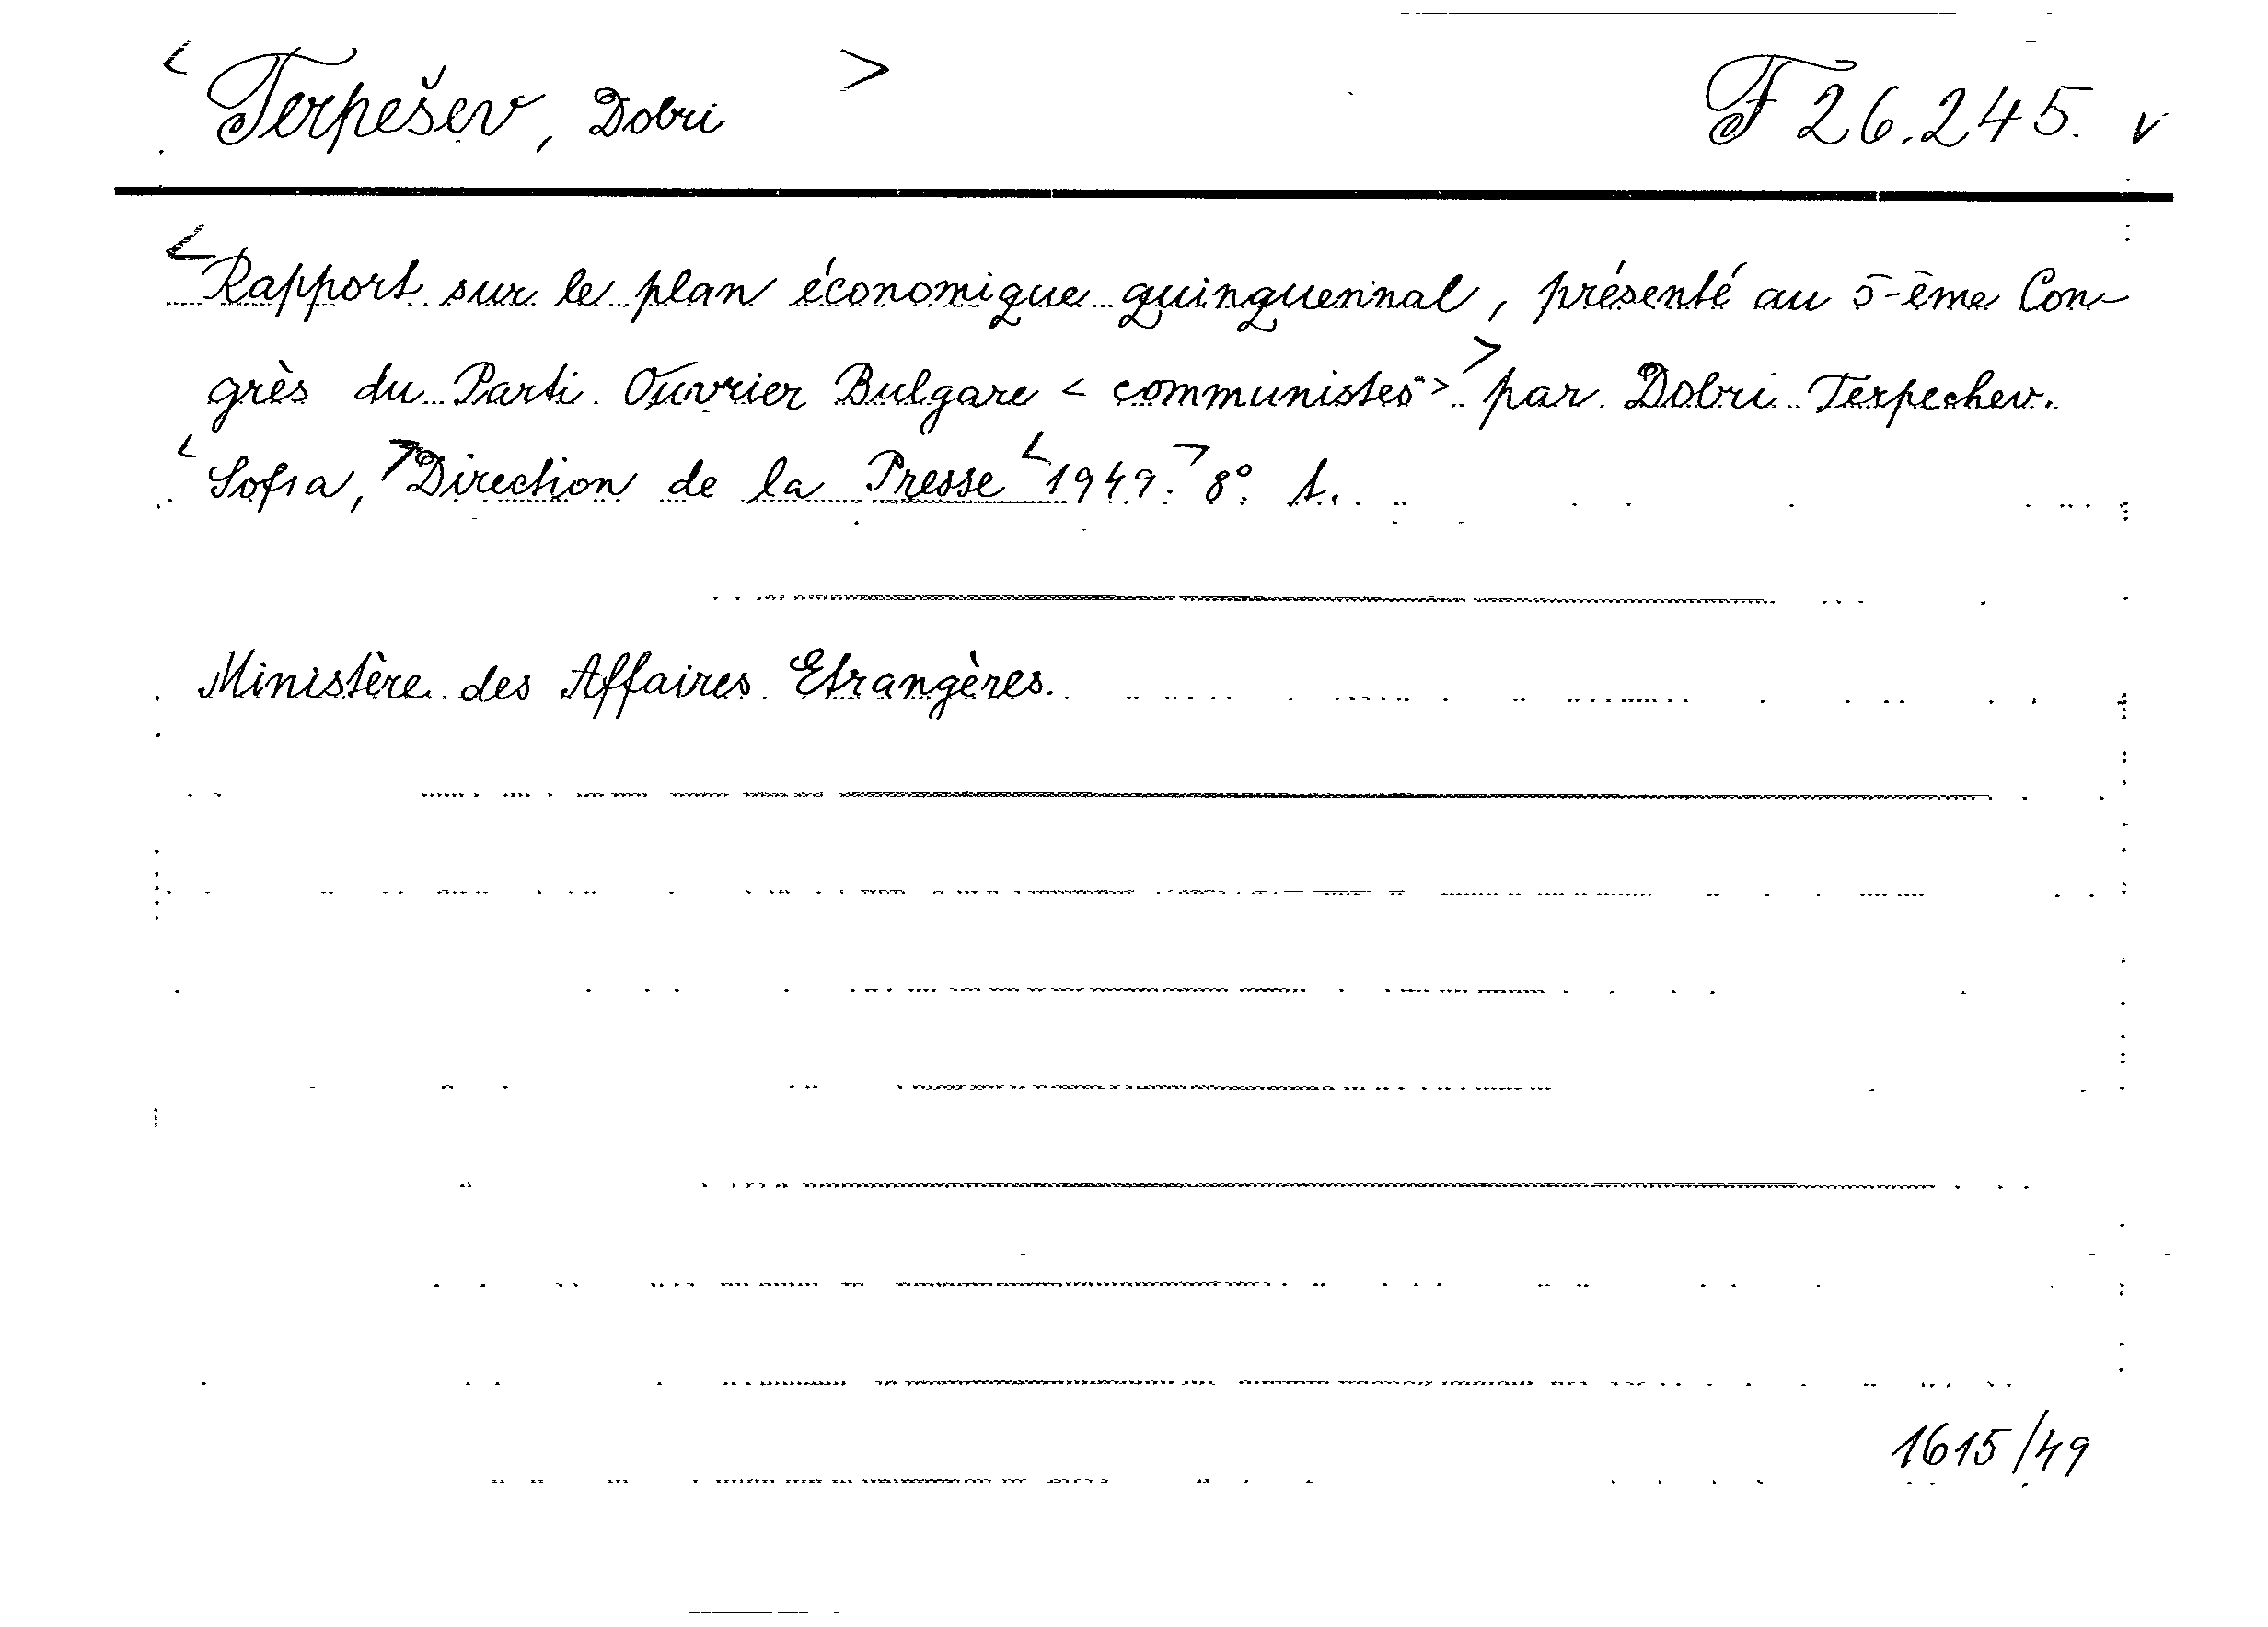 < Terpešev, Dobri > F 26.245. v
<Rapport sur le plan économique quinquennal, présenté au 5-ême Con-
grès du Parti Ouvrier Bulgare < communistes > > par Dobri Terpechev.
< Sofia, > Direction de la Presse < 1949. > 8° 1.
Ministère des Affaires Etrangères.
1615/49